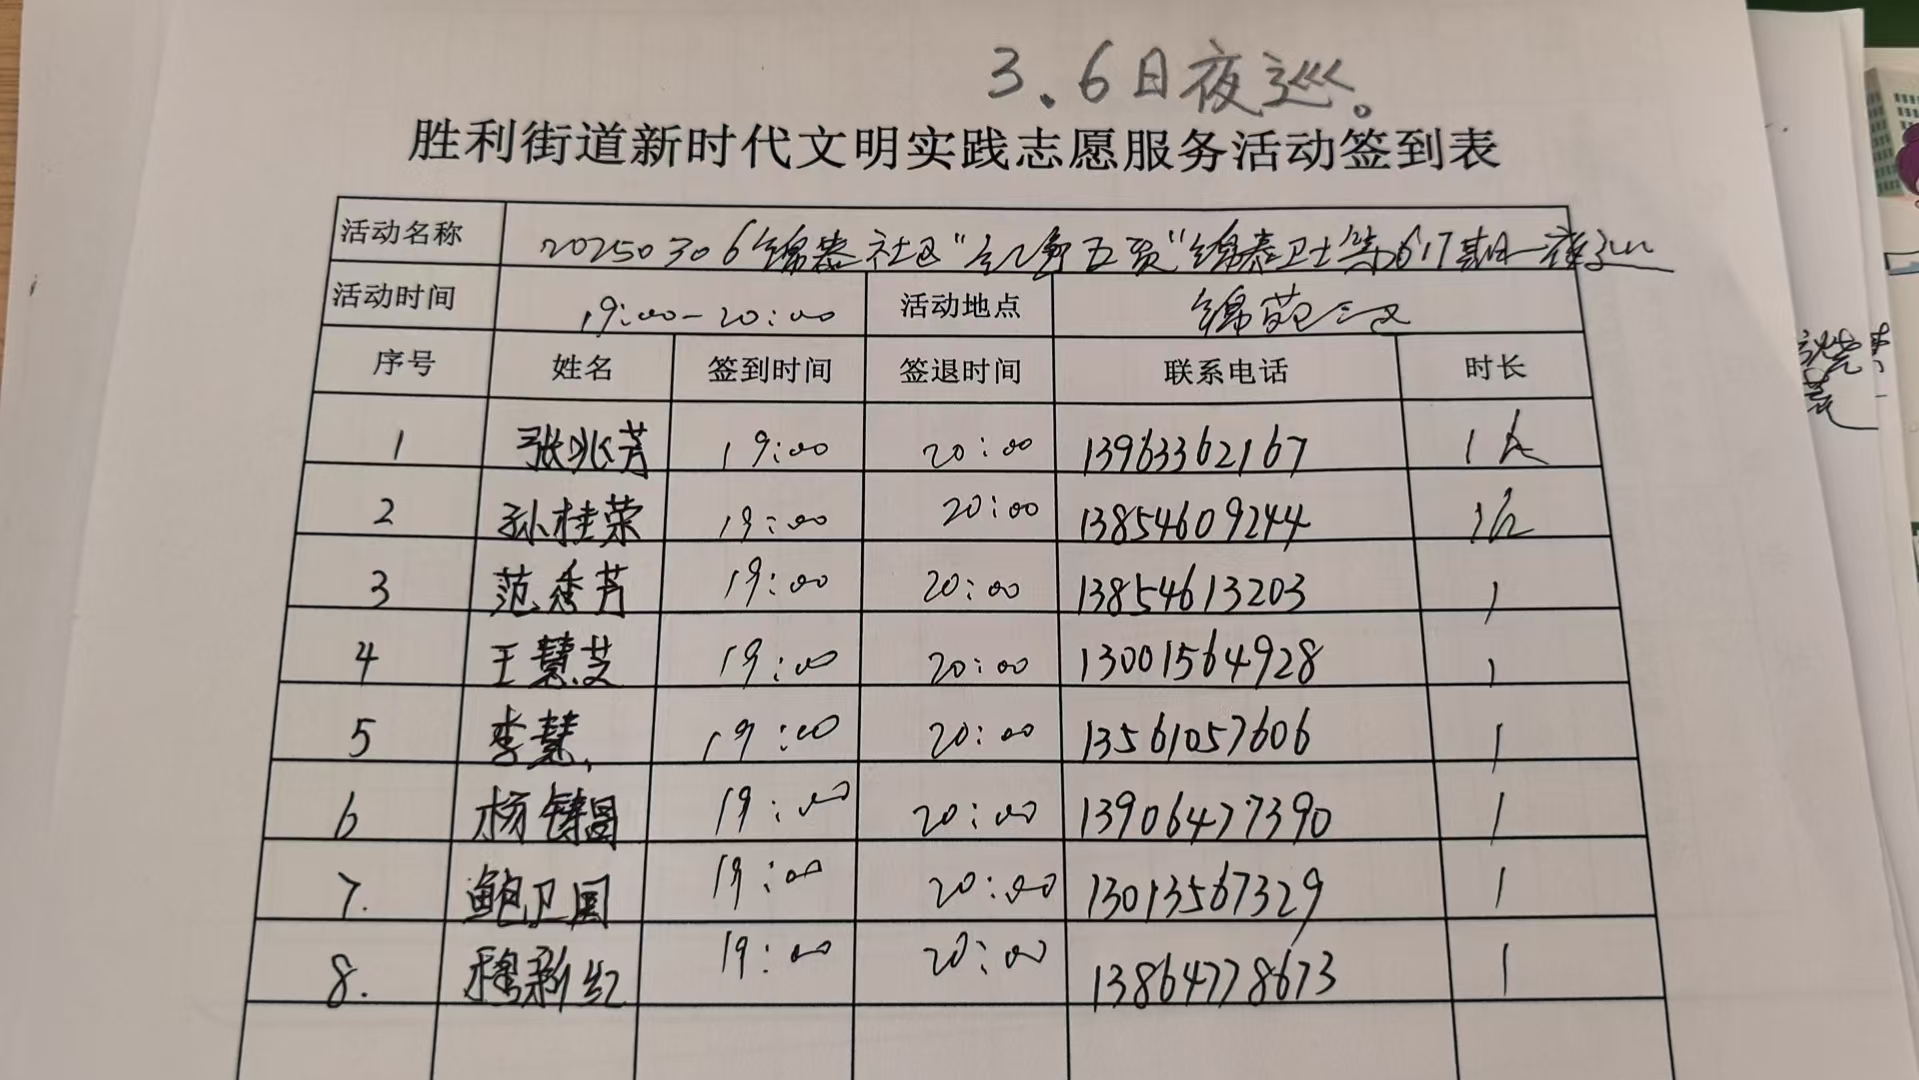 3.6日夜巡。
胜利街道新时代文明实践志愿服务活动签到表
活动名称 20250306锦泰社区"红色五员"锦泰卫士第617期—夜巡
活动时间 19:00-20:00 活动地点 锦苑三区
序号 姓名 签到时间 签退时间 联系电话 时长
1 张兆芳 19:00 20:00 13963362167 1
2 孙桂荣 19:00 20:00 13854609244 1
3 范秀芳 19:00 20:00 13854613203 1
4 王慧芝 19:00 20:00 13001564928 1
5 李慧 19:00 20:00 13561057606 1
6 杨铸昌 19:00 20:00 13906477390 1
7. 鲍卫国 19:00 20:00 13013567329 1
8. 穆新红 19:00 20:00 13864778673 1